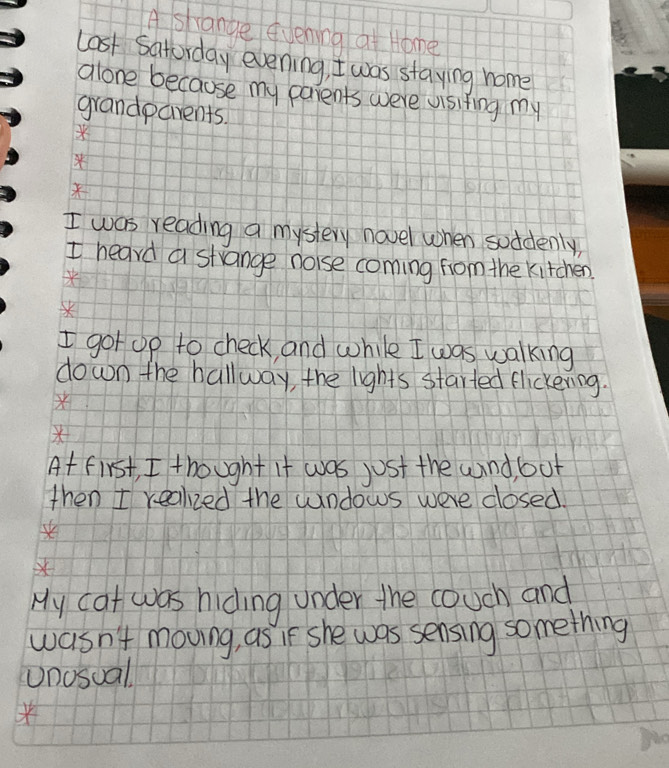 A strange Evening at Home
Last Saturday evening, I was staying home
alone because my parents were visiting my
grandparents.
*
*
*
I was reading a mystery novel when suddenly,
I heard a strange noise coming from the kitchen.
*
*
I got up to check, and while I was walking
down the hallway, the lights started flickering.
*
*
At first, I thought it was just the wind, but
then I realized the windows were closed.
*
*
My cat was hiding under the couch and
wasn't moving, as if she was sensing something
unusual.
*